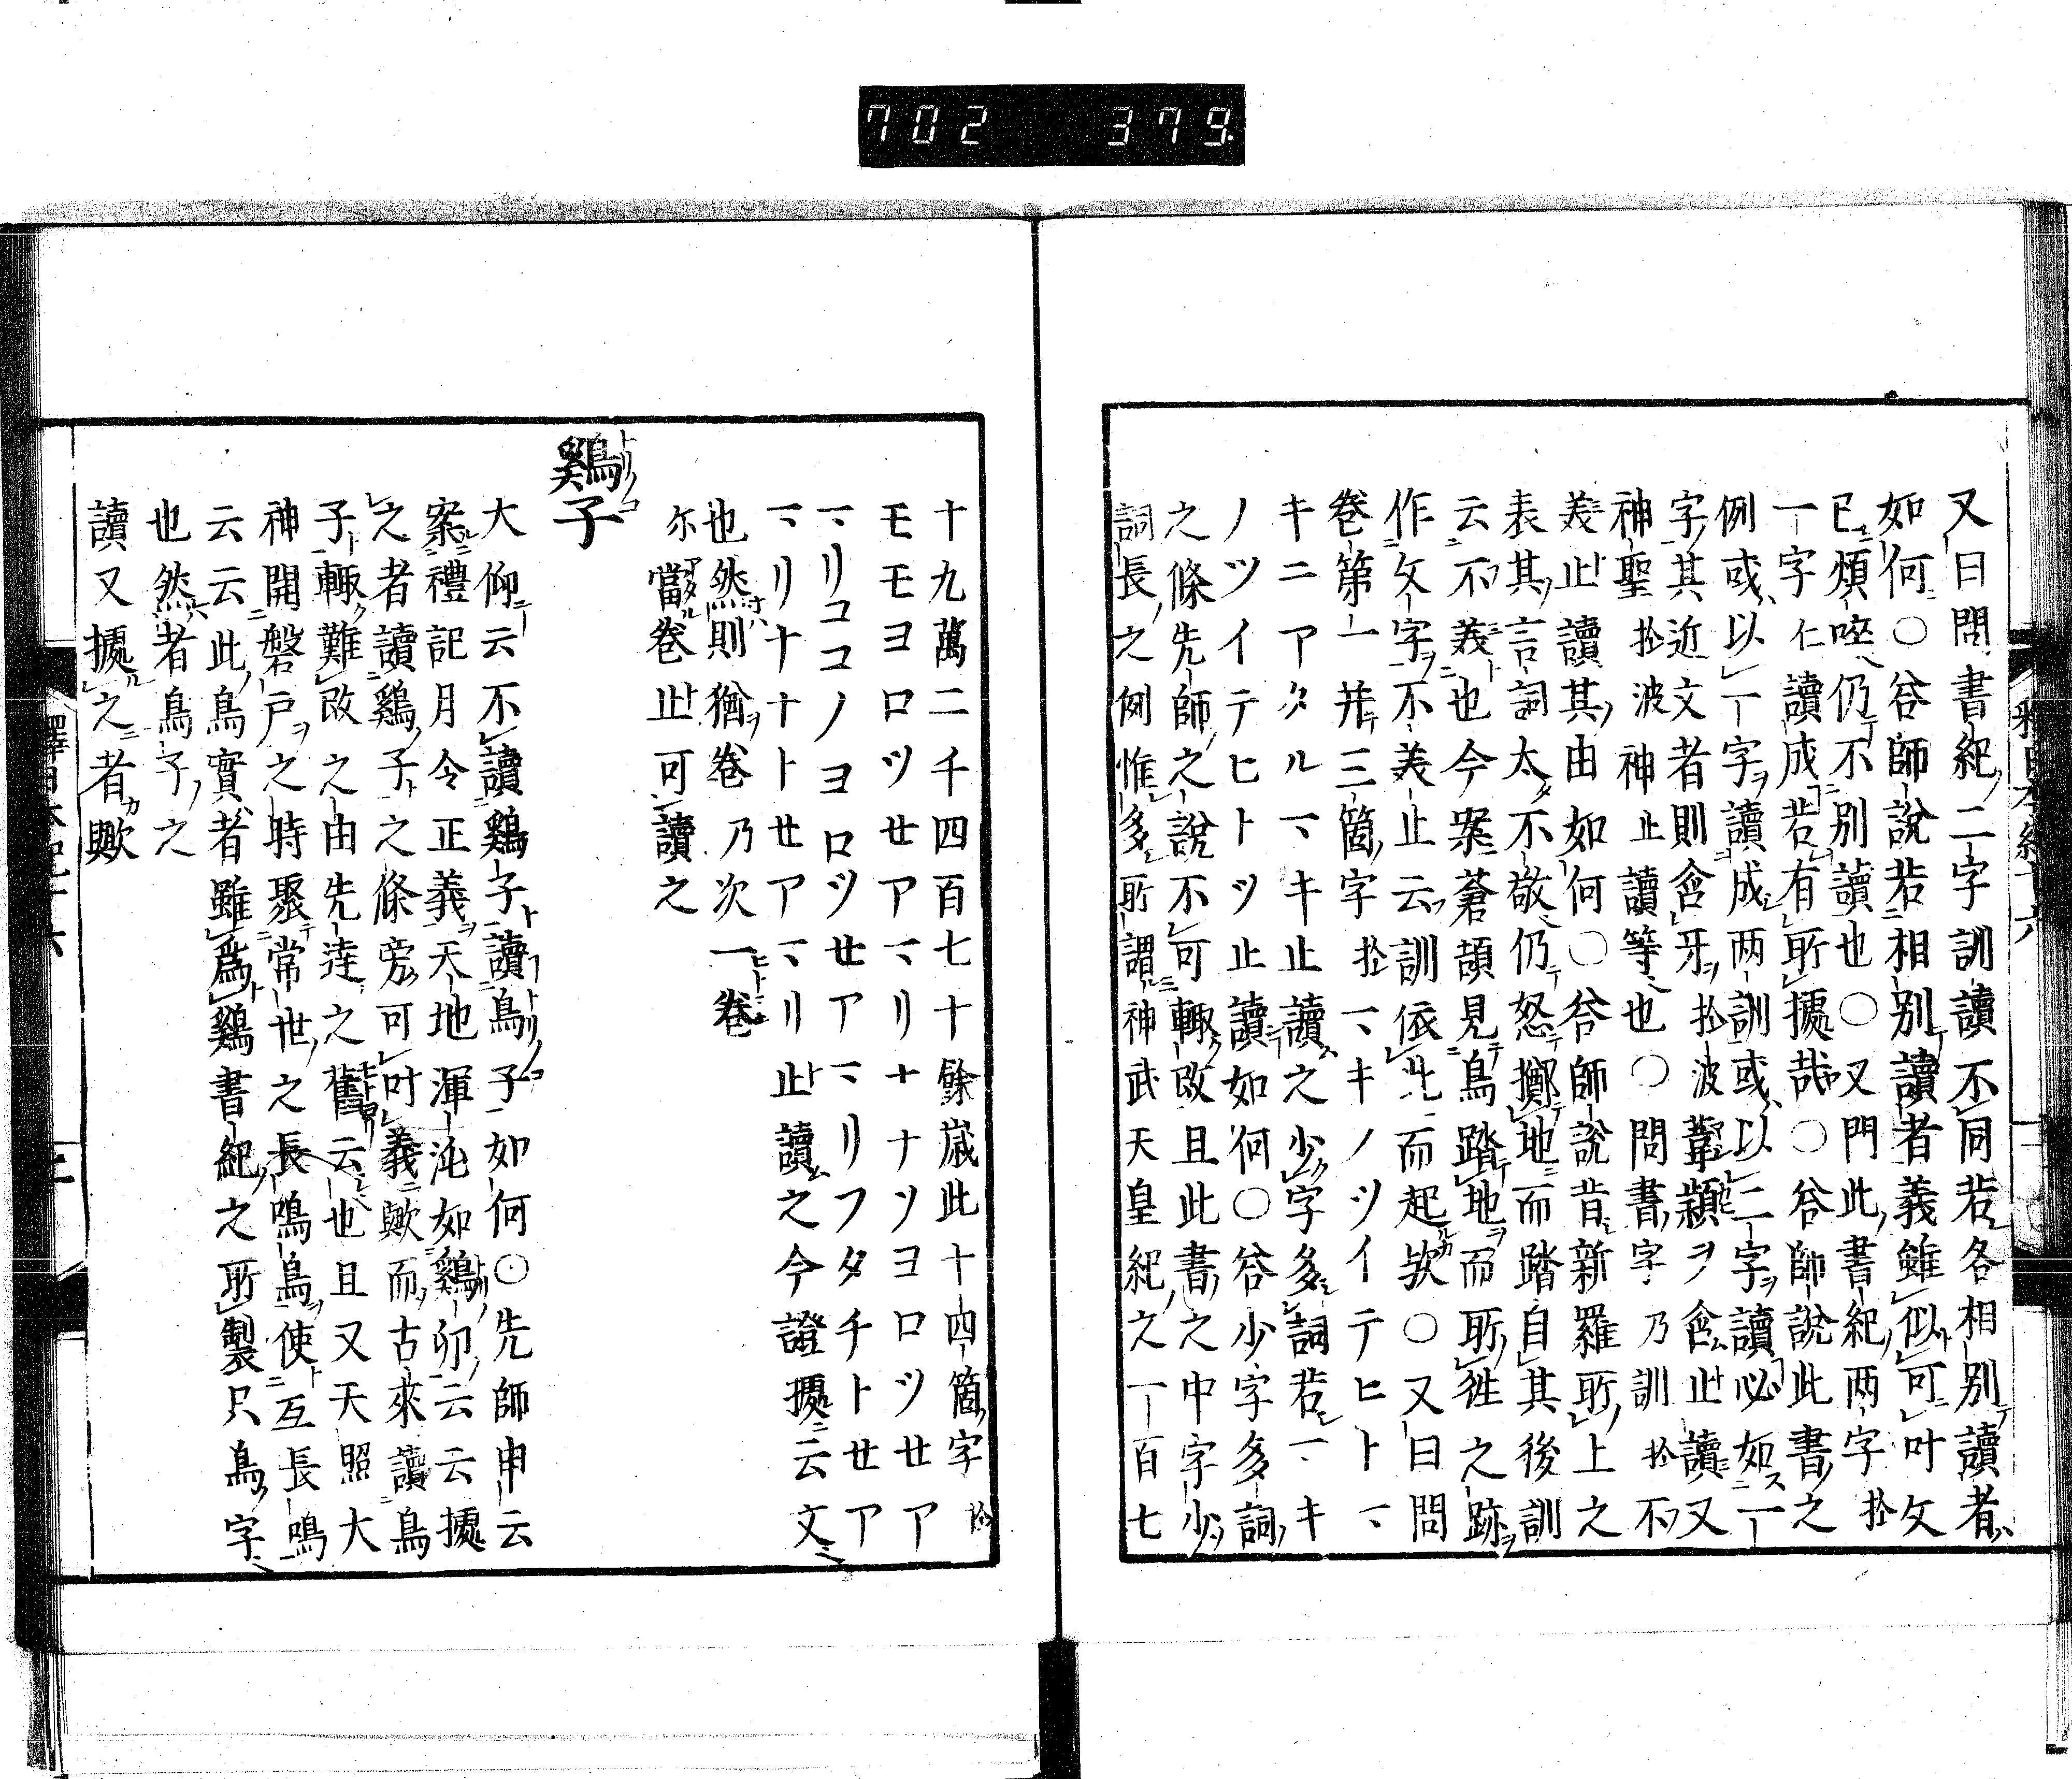 702 379
又曰問書紀二字訓讀不同若各相別讀者
如何○答師說若相別讀者義雖似可叶文
已煩哢仍不別讀也○又門此書紀两字於
一字仁讀成若有所據哉○答師說此書之
例或以一字讀成两訓或以二字讀必如一
字其近文者則含牙於波葦顙ヲ含止讀又
神聖於波神止讀等也○問書字乃訓於不
美止讀其由如何○答師說昔新羅所上之
表其言詞太不敬仍怒擲地而踏自其後訓
云不美也今案蒼頡見鳥踏地而所往之跡
作文字不美止云訓依此而起欤○又曰問
卷第一并三箇字於一マキノツイテヒトマ
キニアタルマキ止讀之少字多詞若マキ
ノツイテヒトツ止讀如何○答少字多詞
之條先師之說不可輙改且此書之中字少
詞長之例惟多所謂神武天皇紀之一百七
十九萬二千四百七十餘歳此十四箇字於
モモヨロツせアマリナナツヨロツせア
マリココノヨロツせアマリフタチトせア
マリナナトせアマリ止讀之今證據云文
也然則猶卷乃次一卷
尓當卷止可讀之
鷄子
大仰云不讀鷄子讀鳥子如何○先師申云
案禮記月令正義天地渾沌如鷄卯云云據
之者讀鷄子之條旁可叶義歟而古來讀鳥
子輙難改之由先達之舊云也且又天照大
神開磐戸之時聚常世之長鳴鳥使互長鳴
云云此鳥實者雖爲鷄書紀之所製只鳥字
也然者鳥子之
讀又據之者歟